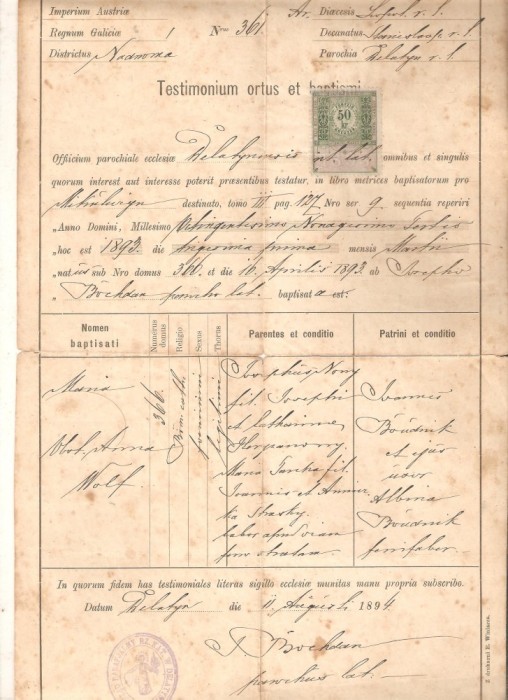 Imperium Austriæ
Regnum Galiciæ
Districtus Nadworna
Nrus 361.
Ar. Diœcesis Leopol. r. l.
Decanatus Stanislaop. r. l.
Parochia Delatyn r. l.
Testimonium ortus et baptismi
50
Officium parochiale ecclesiæ Delatynensis rit. lat. omnibus et singulis
quorum interest aut interesse poterit præsentibus testatur, in libro metrices baptisatorum pro
Mikuliczyn destinato, tomo III pag. 127 Nro ser 9. sequentia reperiri
„Anno Domini, Millesimo Octingentesimo Nonagesimo Tertio
„hoc est 1893. die vigesima prima mensis Martii
„nat sub Nro domus 366. et die 16 Aprilis 1893 ab Josepho
„ Bochdan parocho lat. baptisata est:
Nomen baptisati
Numerus domus
Religio
Sexus
Thorus
Parentes et conditio
Patrini et conditio
Maria
Obst. Anna
Wolf.
366.
Rom. cath.
feminini
legitimi
Josephus Nowy
fil. Josephi
et Catharinae
Maria fil.
Joannis et Annae
labor apud viam
ferro stratam
Joannes
Boudnik
et ejus
uxor
Albina
Boudnik
In quorum fidem has testimoniales literas sigillo ecclesiæ munitas manu propria subscribo.
Datum Delatyn die 11 Augusti 1894.
J. Bochdan
parochus lat.